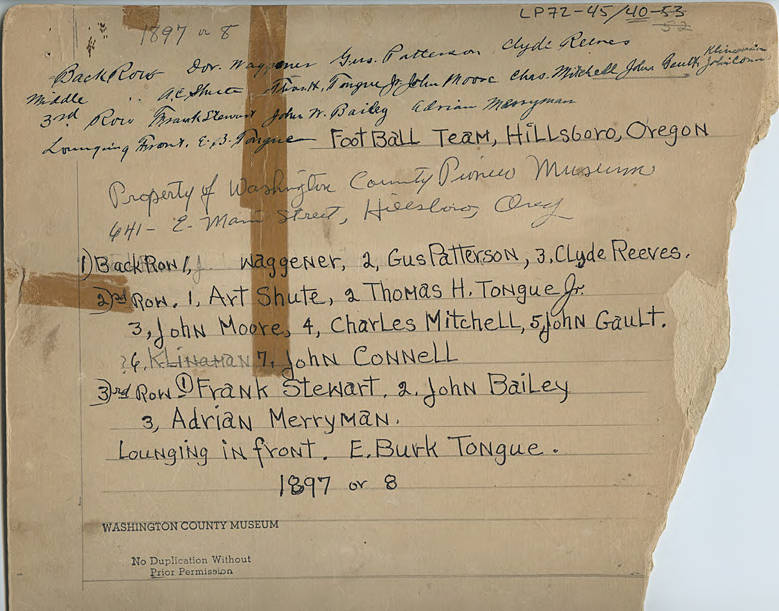 LP72-45/40-53
52
1897 or 8
Back Row Dor. Waggener Gus. Patterson Clyde Reeves
Middle " A.C. Shute Thos H. Tongue Jr John Moore Chas. Mitchell John Gault Klineman John Conn
3rd Row Frank Stewart John W. Bailey Adrian Merryman
Lounging Front. E. B. Tongue Football Team, Hillsboro, Oregon
Property of Washington County Pioneer Museum
641- E. Main Street, Hillsboro, Oreg
1) Back Row 1, J. Waggener, 2, Gus Patterson, 3, Clyde Reeves.
2nd Row. 1, Art Shute, 2 Thomas H. Tongue Jr.
3, John Moore, 4, Charles Mitchell, 5, John Gault.
?6, Klinaman 7, John Connell
3rd Row 1 Frank Stewart. 2. John Bailey
3, Adrian Merryman.
Lounging in front. E. Burk Tongue.
1897 or 8
WASHINGTON COUNTY MUSEUM
No Duplication Without
Prior Permission